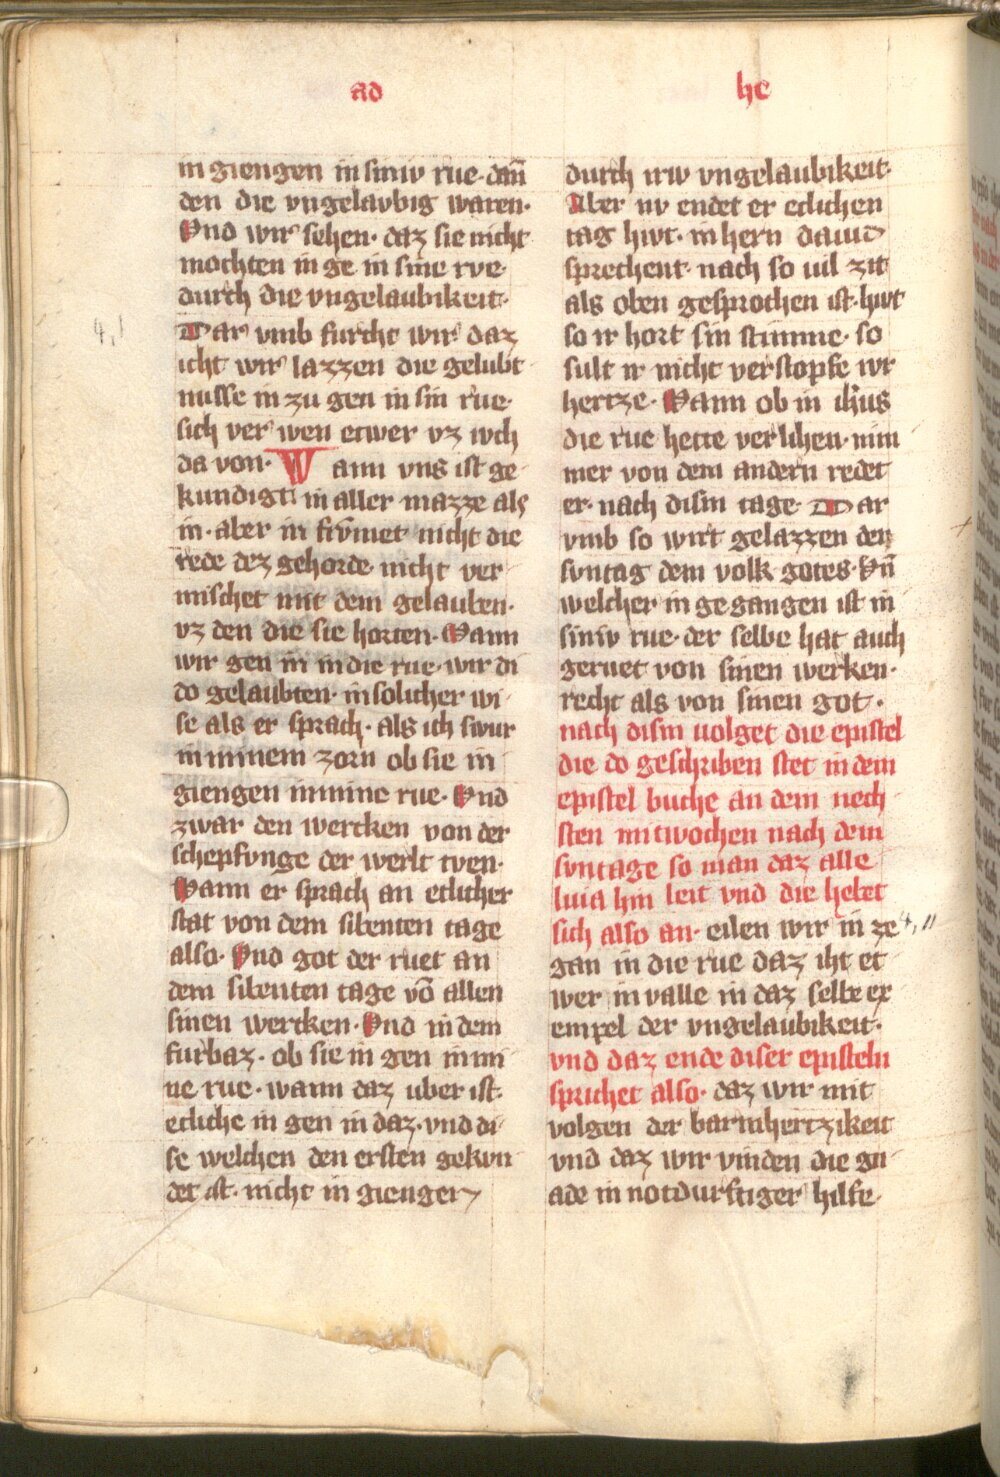 ad
he
in giengen in siniv rue· dañ
den die vngelavbig waren·
Vnd wir sehen· daz sie nicht
mochten in ge in sine rve·
durch die vngelaubikeit·
4,1
Dar vmb furcht wir daz
icht wir lazzen die gelubt
nusse in zu gen in sin rue·
sich ver wen etwer vz ivch
da von· Wann vns ist ge
kundigt in aller mazze als
in· aber in frvmet nicht die
rede dez gehorde· nicht ver
mischet mit dem gelauben·
vz den die sie horten· Wann
wir gen in in die rue· wir di
do gelaubten· in solicher wi
se als er sprach· als ich swur
in minem zorn ob sie in
giengen in mine rue· Vnd
zwar den wercken von der
schepfvnge der werlt tven·
Wann er sprach an etlicher
stat von dem sibenten tage
also· Vnd got der ruet an
dem sibenten tage vō allen
sinen wercken· Vnd in dem
furbaz· ob sie in gen in mi
ne rue· wann daz uber ist·
etliche in gen in daz· vnd di
se welchen den ersten gekvn
det ist· nicht in giengen
durch irw vngelaubikeit·
Aber nv endet er etlichen
tag hivt· in hern dauid
sprechent· nach so uil zit
als oben gesprochen ist· hivt
so ir hort sin stimme· so
sult ir nicht verstopfe iwr
hertze· Wann ob in ih̄us
die rue hette verlihen· nim
mer von dem andern redet
er· nach disin tage· Dar
vmb so wirt gelazzen der
svntag dem volk gotes· Vn̄
welcher in gegangen ist in
siniv rue· der selbe hat auch
geruet von sinen werken·
recht als von sinen got·
nach disin uolget die epistel
die do geschriben stet in dem
epistel buche an dem nech
sten mitwochen nach dem
svntage so man daz alle
luia hin leit vnd die hebet
sich also an· eilen wir in ze
4,11
gan in die rue daz iht et
wer in valle in daz selbe ex
empel der vngelaubikeit·
vnd daz ende diser episteln
sprichet also· daz wir mit
volgen der barmhertzikeit
vnd daz wir vinden die gn
ade in notdurftiger hilfe·